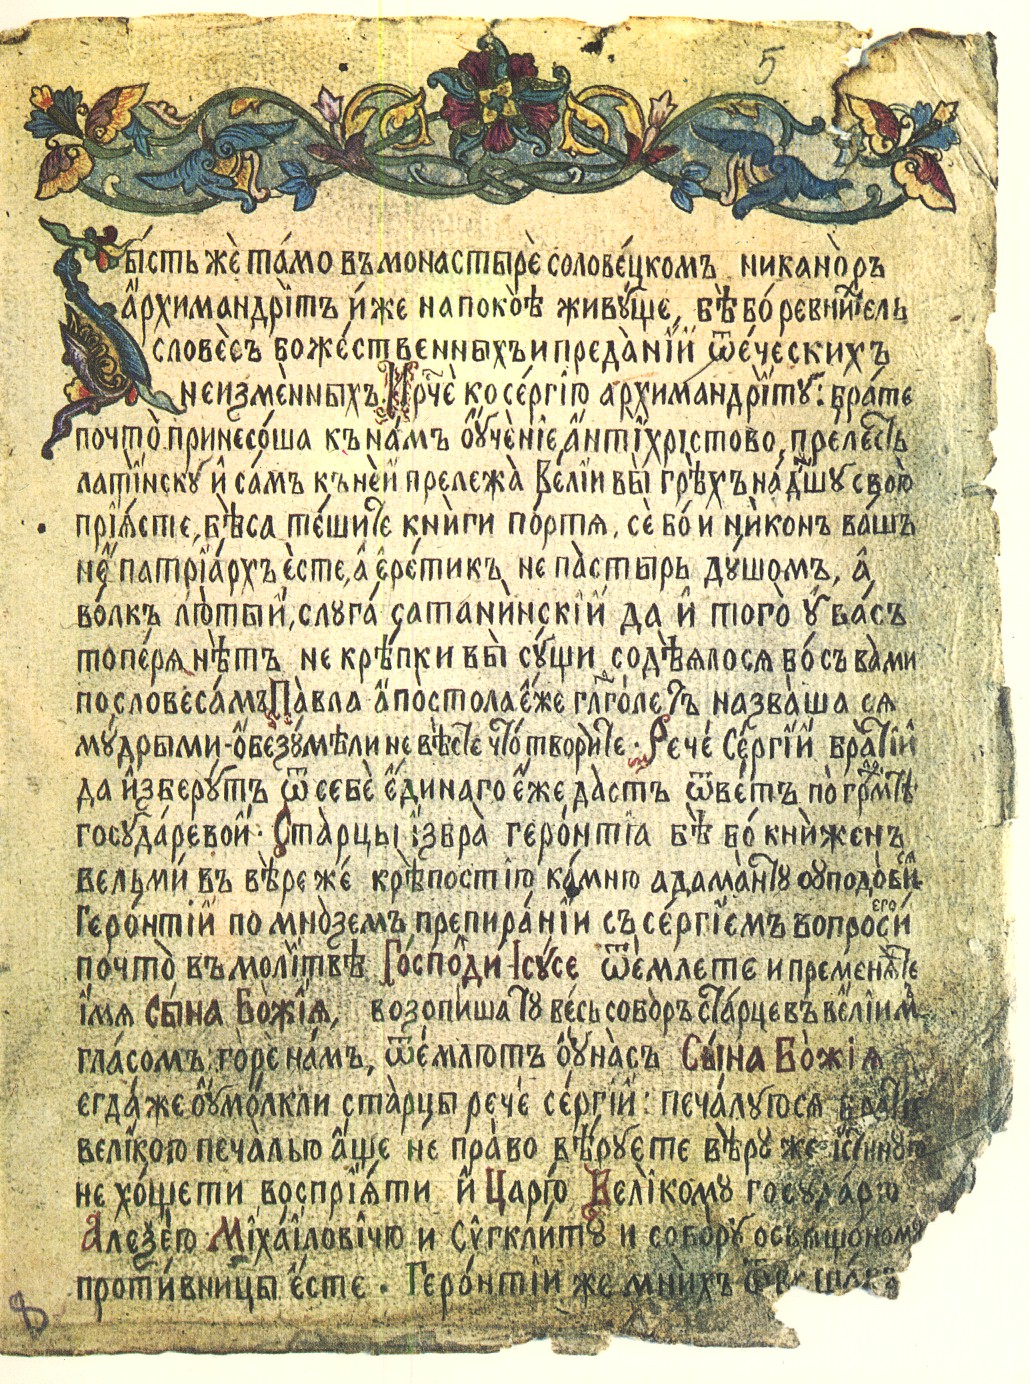 5
бы́сть жѐ та́мо въ монастырѐ солове́цкомъ никано̀ръ
а҆рхимандрѝтъ и́же на поко́ѣ живу́ще, бѣ бо́ ревни́тель
словѐсъ боже́ственныхъ и преда̀нїй ѿе́ческихъ
неизмѐнныхъ. И҆ рчѐ ко се́ргїю архимандрѝту: бра́те
почто̀ принесо́ша къ на́мъ оу҆чѐнїе а҆нтїхрїстово, пре́лесть
лати̋нску и҆ са́мъ къ не́й прележа̀ Ве́лїй вы̀ грѣ́хъ на дш҃у свою̀
прїѧ́сте, бѣ́са тѣ́шите кни̋ги по́ртѧ, сѐ бо́ и ни́конъ ва́шъ
не҆ патрїа́рхъ ѐсте, а҆ ере́тикъ, не па̀стырь ду́шомъ, а҆
во́лкъ лю́тый, слуга́ сатани́нскїй да и҆ того̀ у҆ ва́съ
топе́рѧ нѣ́тъ не крѣ́пки вы̀ су́щи содѣ́ѧлосѧ бо́ съ ва́ми
по словеса́мъ Па́вла а҆постола е҆́же гл҃го́летъ назва̀ша сѧ
му́дрыми – о҆безу́мѣли не вѣ́сте что̀ твори̋те. Рече́ Се́ргїй бра́тїй
да и҆зберу́тъ ѿ себѐ е҆ди́наго е҆́же да̀стъ ѿвѣ́тъ по гра́мотѣ
госуда́ревой. Ста̀рцы и҆збра̀ геро́нтїа бѣ̀ бо́ кни́женъ
вельми́ въ вѣ́ре же́ крѣ̀постїю ка́мню адама̀нту оуподо́бисѧ
Геро́нтїй по мно̀земъ препира́нїи съ се́ргїемъ вопроси́ его
почто̀ въ моли̋твѣ Го́споди Ісу́се ѿе́млете и премене́те
и҆́мѧ Сы́на Бо̀жїѧ, возопи́ша ту ве́сь собо̀ръ ста́рцевъ ве́лїимъ
гла́сомъ: горе на́мъ, ѿе́млютъ оу҆ на́съ Сы́на Бо̀жїѧ
егда́ же оу҆мо́лкли ста̀рцы рече́ се́ргїй: печа́луюсѧ бра́тїе
вели́кою печа́лью а҆́ще не пра̀во вѣ́руете вѣ́ру же и҆́стиную
не хо́щети воспрїѧ́ти и҆ Царю̀ Вели́кому госуда́рю
Алезе́ю Міха́йловічю и Су́гклиту и собо́ру осьвищо́ному
проти́вницы є҆́сте. Геро́нтїи же мни́хъ